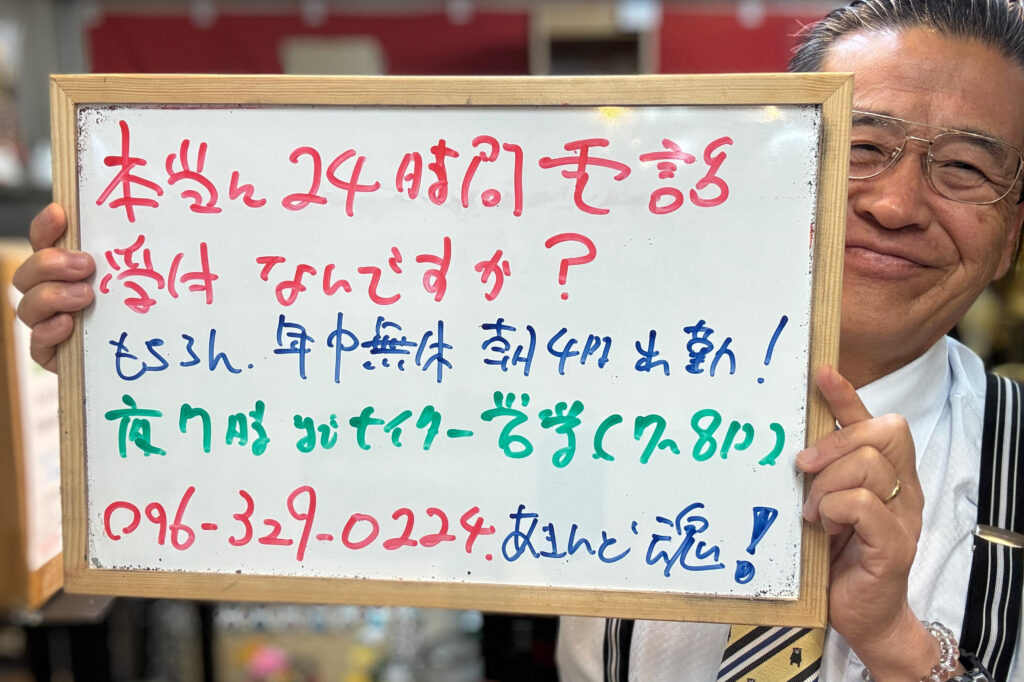 本当に24時間電話
受付なんですか?
もちろん、年中無休 朝4時出勤!
夜7時までナイター営業(7〜8月)
096-329-0224. あまんど魂!